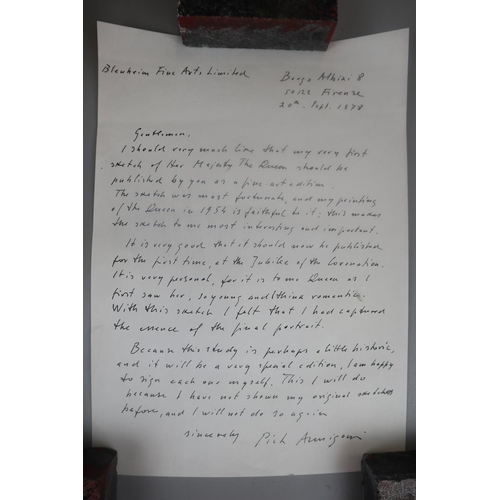 Blenheim Fine Arts Limited
Borgo Albizi 8
50122 Firenze
20th. Sept. 1978
Gentlemen,
I should very much like that my very first
sketch of Her Majesty The Queen should be
published by you as a fine-art edition.
The sketch was most fortunate, and my painting
of the Queen in 1954 is faithful to it; this makes
the sketch to me most interesting and important.
It is very good that it should now be published
for the first time, at the Jubilee of the Coronation.
It is very personal, for it is to me Queen as I
first saw her, so young and I think romantic.
With this sketch I felt that I had captured
the essence of the final portrait.
Because this study is perhaps a little historic,
and it will be a very special edition, I am happy
to sign each one myself. This I will do
because I have not shown my original sketches
before, and I will not do so again
sincerely Pietro Annigoni